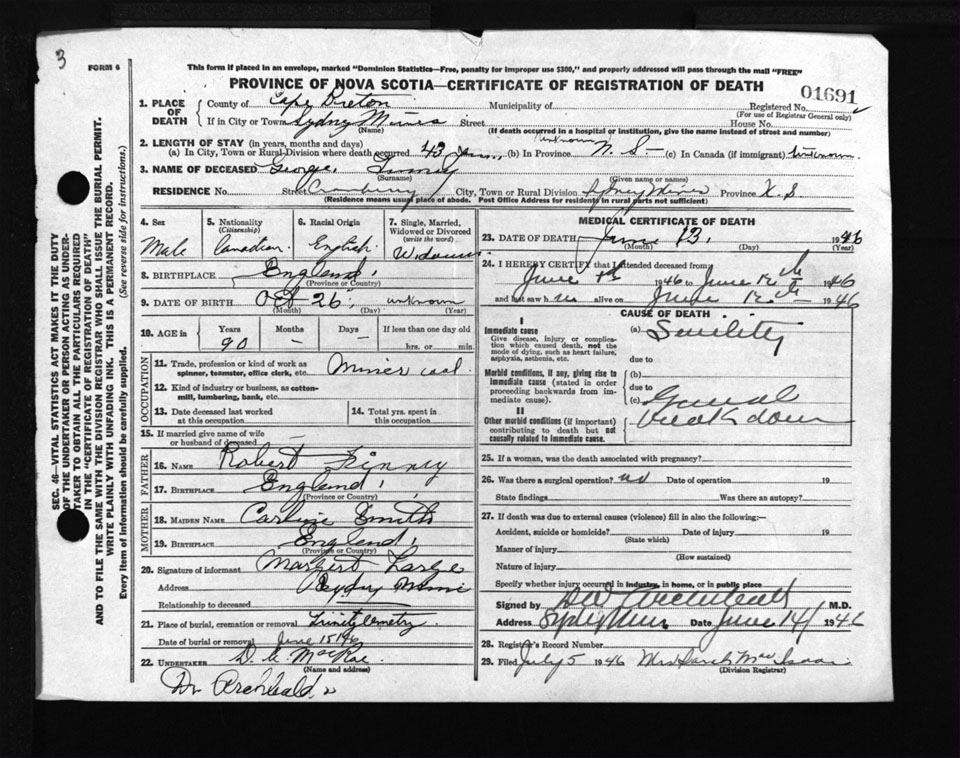 3
FORM 6
This form if placed in an envelope, marked "Dominion Statistics—Free, penalty for improper use $300," and properly addressed will pass through the mail "FREE"
PROVINCE OF NOVA SCOTIA—CERTIFICATE OF REGISTRATION OF DEATH
01691
1. PLACE OF DEATH
County of Cape Breton Municipality of Registered No.
(For use of Registrar General only)
If in City or Town Sydney Mines Street House No.
(Name) (If death occurred in a hospital or institution, give the name instead of street and number)
2. LENGTH OF STAY (in years, months and days) unknown
(a) In City, Town or Rural Division where death occurred 43 (b) In Province N. S— (c) In Canada (if immigrant) unknown.
3. NAME OF DECEASED George
(Surname) (Given name or names)
RESIDENCE No. Street Cranberry City, Town or Rural Division Sydney Mines Province N. S
(Residence means usual place of abode. Post Office Address for residents in rural parts not sufficient)
4. Sex
Male
5. Nationality
(Citizenship)
Canadian.
6. Racial Origin
English.
7. Single, Married, Widowed or Divorced
(write the word)
8. BIRTHPLACE England,
(Province or Country)
9. DATE OF BIRTH Oct 26 unknown
(Month) (Day) (Year)
10. AGE in Years Months Days If less than one day old
90 — — hrs. or min.
OCCUPATION
11. Trade, profession or kind of work as
spinner, teamster, office clerk, etc. Miner coal
12. Kind of industry or business, as cotton-
mill, lumbering, bank, etc.
13. Date deceased last worked
at this occupation
14. Total yrs. spent in
this occupation
15. If married give name of wife
or husband of deceased —
FATHER
16. NAME Robert Finney
17. BIRTHPLACE England,
(Province or Country)
MOTHER
18. MAIDEN NAME Smith
19. BIRTHPLACE England,
(Province or Country)
20. Signature of informant Large
Address Sydney Mines
Relationship to deceased
21. Place of burial, cremation or removal Trinity Cemetry.
Date of burial or removal June 15
22. UNDERTAKER MacRae.
(Name and address)
Dr Archbald
MEDICAL CERTIFICATE OF DEATH
23. DATE OF DEATH June 13, 1946
(Month) (Day)
24. I HEREBY CERTIFY that I attended deceased from
June 1946 to June 12th 1946
and last saw h alive on June 12th 1946
CAUSE OF DEATH
I
Immediate cause
Give disease, injury or complica-
tion which caused death, not the
mode of dying, such as heart failure,
asphyxia, asthenia, etc.
(a) Senility
due to
Morbid conditions, if any, giving rise to
immediate cause (stated in order
proceeding backwards from im-
mediate cause).
(b)
due to
(c) General
II
Other morbid conditions (if important)
contributing to death but not
causally related to immediate cause.
break down
25. If a woman, was the death associated with pregnancy?
26. Was there a surgical operation? no Date of operation 19
State findings Was there an autopsy?
27. If death was due to external causes (violence) fill in also the following:—
Accident, suicide or homicide? Date of injury 19
(State which)
Manner of injury
(How sustained)
Nature of injury
Specify whether injury occurred in industry, in home, or in public place
Signed by Archibald M.D.
Address Date June 14/ 1946
28. Registrar's Record Number
29. Filed July 5 1946 Mrs Sarah Mac Isaac
(Division Registrar)
SEC. 46—VITAL STATISTICS ACT MAKES IT THE DUTY
OF THE UNDERTAKER OR PERSON ACTING AS UNDER-
TAKER TO OBTAIN ALL THE PARTICULARS REQUIRED
IN THE "CERTIFICATE OF REGISTRATION OF DEATH"
AND TO FILE THE SAME WITH THE DIVISION REGISTRAR WHO SHALL ISSUE THE BURIAL PERMIT.
WRITE PLAINLY WITH UNFADING INK. THIS IS A PERMANENT RECORD.
Every item of information should be carefully supplied. (See reverse side for instructions.)